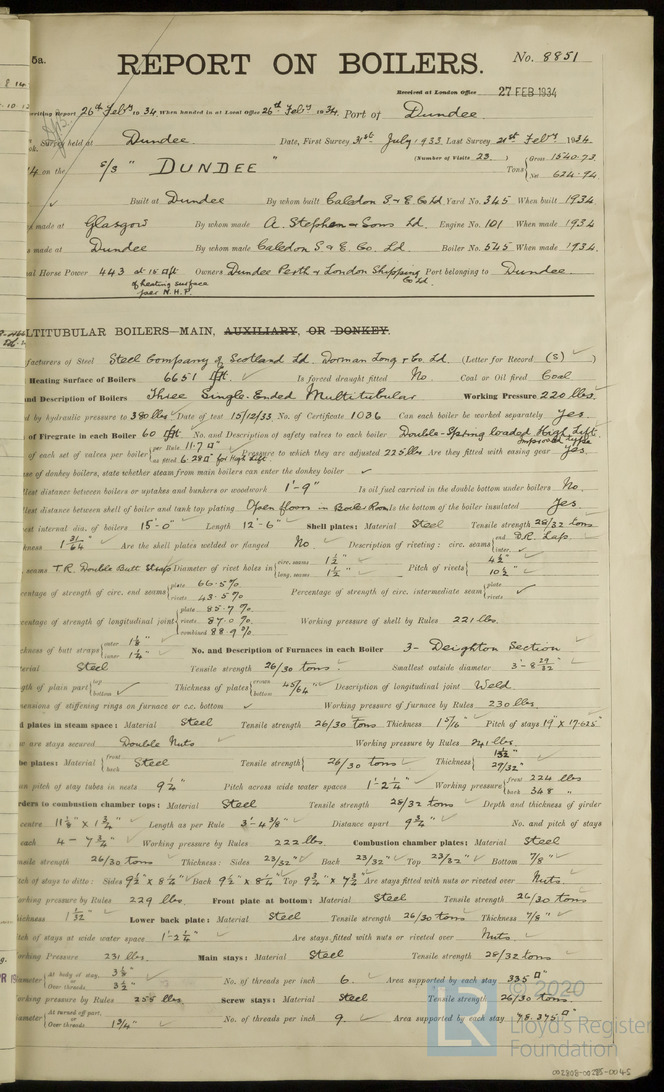 5a.
REPORT ON BOILERS.
No. 8851
Received at London Office 27 FEB 1934
writing Report 26th Feby 19 34 When handed in at Local Office 26th Feby 19 34 Port of Dundee
Survey held at Dundee Date, First Survey 31st July 1933 Last Survey 21st Feby 1934
on the S/S "DUNDEE" (Number of Visits 23) Tons { Gross 1540.73 Net 624.94
Built at Dundee By whom built Caledon S & E Co Ld Yard No. 345 When built 1934
made at Glasgow By whom made A. Stephen & Sons Ld. Engine No. 101 When made 1934
made at Dundee By whom made Caledon S & E. Co. Ld. Boiler No. 545 When made 1934.
Horse Power 443 at 15 □ft of heating surface per N.H.P. Owners Dundee Perth & London Shipping Co Ld. Port belonging to Dundee
LTITUBULAR BOILERS—MAIN, AUXILIARY, OR DONKEY.
facturers of Steel Steel Company of Scotland Ld. Dorman Long & Co. Ld. (Letter for Record (S) )
Heating Surface of Boilers 6651 □ft. Is forced draught fitted No. Coal or Oil fired Coal
and Description of Boilers Three Single-Ended Multitubular Working Pressure 220 lbs.
d by hydraulic pressure to 380 lbs Date of test 15/12/33. No. of Certificate 1036 Can each boiler be worked separately Yes.
of Firegrate in each Boiler 60 □ft No. and Description of safety valves to each boiler Double-Spring loaded High Lift Improved type
of each set of valves per boiler { per Rule 11.7 □" as fitted 6.28 □" for High Lift. Pressure to which they are adjusted 225 lbs Are they fitted with easing gear Yes.
se of donkey boilers, state whether steam from main boilers can enter the donkey boiler ✓
lest distance between boilers or uptakes and bunkers or woodwork 1'-9" Is oil fuel carried in the double bottom under boilers No.
lest distance between shell of boiler and tank top plating Open floors in Boiler Room Is the bottom of the boiler insulated Yes
est internal dia. of boilers 15'-0" Length 12'-6" Shell plates: Material Steel Tensile strength 28/32 tons
kness 1 31/64" Are the shell plates welded or flanged No Description of riveting: circ. seams { end D.R. Lap. inter. ✓
seams T.R. Double Butt Straps Diameter of rivet holes in { circ. seams 1 1/2" long. seams 1 1/2" Pitch of rivets { 4 1/2" 10 1/2"
centage of strength of circ. end seams { plate 66.5% rivets 43.5% Percentage of strength of circ. intermediate seam { plate rivets ✓
centage of strength of longitudinal joint { plate 85.7% rivets 87.0% combined 88.9% Working pressure of shell by Rules 221 lbs.
ckness of butt straps { outer 1 1/8" inner 1 1/4" No. and Description of Furnaces in each Boiler 3- Deighton Section
erial Steel Tensile strength 26/30 tons Smallest outside diameter 3'-8 29/32"
gth of plain part { top bottom ✓ Thickness of plates { crown bottom 45/64" Description of longitudinal joint Weld.
mensions of stiffening rings on furnace or c.c. bottom ✓ Working pressure of furnace by Rules 230 lbs.
d plates in steam space: Material Steel Tensile strength 26/30 tons Thickness 1 5/16" Pitch of stays 19" x 17.625"
w are stays secured Double Nuts Working pressure by Rules 241 lbs.
be plates: Material { front back Steel Tensile strength { 26/30 tons Thickness { 1 1/32" 29/32"
n pitch of stay tubes in nests 9 1/4" Pitch across wide water spaces 1'-2 1/4" Working pressure { front 224 lbs back 348 "
rders to combustion chamber tops: Material Steel Tensile strength 28/32 tons Depth and thickness of girder
centre 11 1/8" x 1 3/4" Length as per Rule 3'-4 3/8" Distance apart 9 3/4" No. and pitch of stays
each 4 - 7 3/4" Working pressure by Rules 222 lbs. Combustion chamber plates: Material Steel
nsile strength 26/30 tons Thickness: Sides 23/32" Back 23/32" Top 23/32" Bottom 7/8"
tch of stays to ditto: Sides 9 1/2" x 8 1/4" Back 9 1/2" x 8 1/4" Top 9 3/4" x 7 3/4 Are stays fitted with nuts or riveted over Nuts
orking pressure by Rules 229 lbs. Front plate at bottom: Material Steel Tensile strength 26/30 tons
hickness 1 1/32" Lower back plate: Material Steel Tensile strength 26/30 tons Thickness 7/8"
itch of stays at wide water space 1'-2 1/4" Are stays fitted with nuts or riveted over Nuts.
orking Pressure 231 lbs. Main stays: Material Steel Tensile strength 28/32 tons
iameter { At body of stay, 3 1/8" or Over threads 3 1/2" No. of threads per inch 6. Area supported by each stay 335 □"
orking pressure by Rules 255 lbs Screw stays: Material Steel Tensile strength 26/30 tons.
iameter { At turned off part, or Over threads 1 3/4" No. of threads per inch 9. Area supported by each stay 78.375 □"
© 2020
Lloyd's Register
Foundation
002808-00285-0045